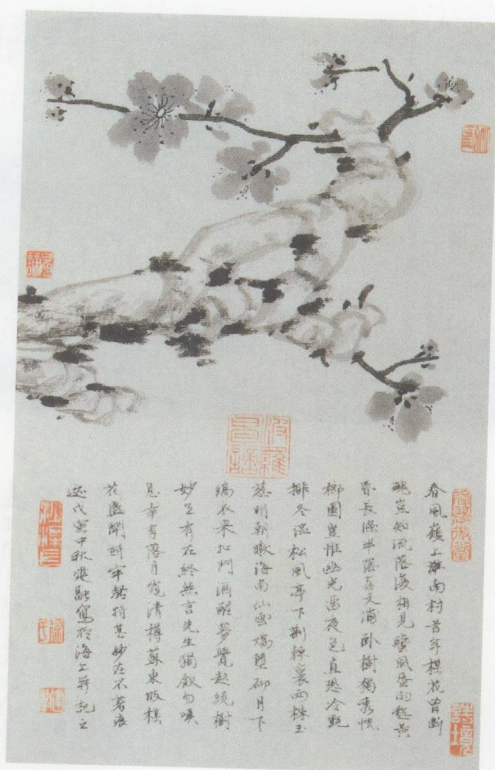 春風嶺上淮南村昔年楳花曾斷
魂豈知流落復相見蠻風蜑雨愁黃
昏長條半落荔支浦卧樹獨秀桄
榔園豈惟幽光留夜色直恐冷艷
排冬溫松風亭下荊棘裏兩株玉
蕊明朝暾海南仙雲嬌墮砌月下
縞衣来扣門酒醒夢覺起繞樹
妙意有在終無言先生獨飲勿嘆
息幸有落月窺清樽蘇東坡楳
花盛開詩其妙在不著痕
迹戊寅中秋寫於海上并記之